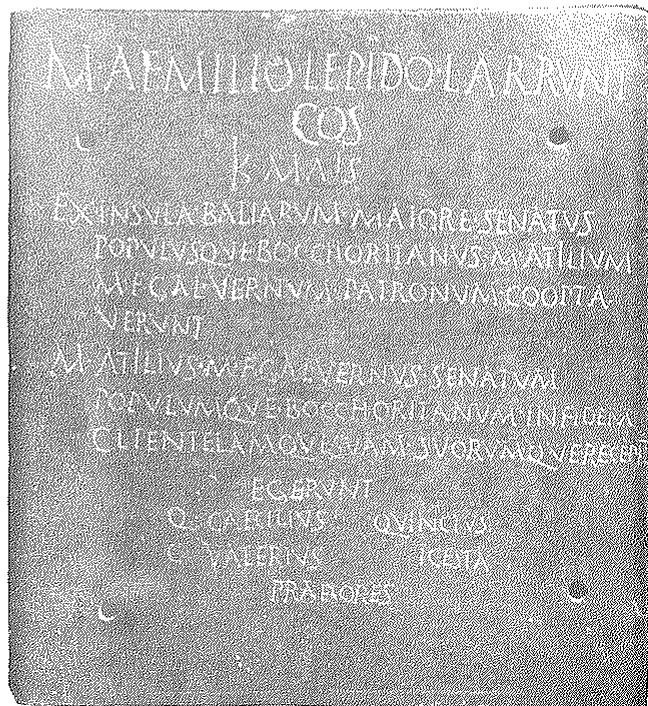 M·AEMILIO·LEPIDO·L·ARRVNT
COS
K MAIS
EX·INSVLA·BALIARVM·MAIORE·SENATVS
POPVLVSQVE·BOCCHORITANVS·M·ATILIVM
M·F·GAL·VERNVM·PATRONVM·COOPTA
VERVNT
M·ATILIVS·M·F·GAL·VERNVS·SENATVM
POPVLVMQVE·BOCCHORITANVM·IN FIDEM
CLIENTELAMQVE·SVAM·SVORVMQVE·RECEPIT
EGERVNT
Q CAECILIVS QVINCTVS
C VALERIVS ICESTA
PRAETORES